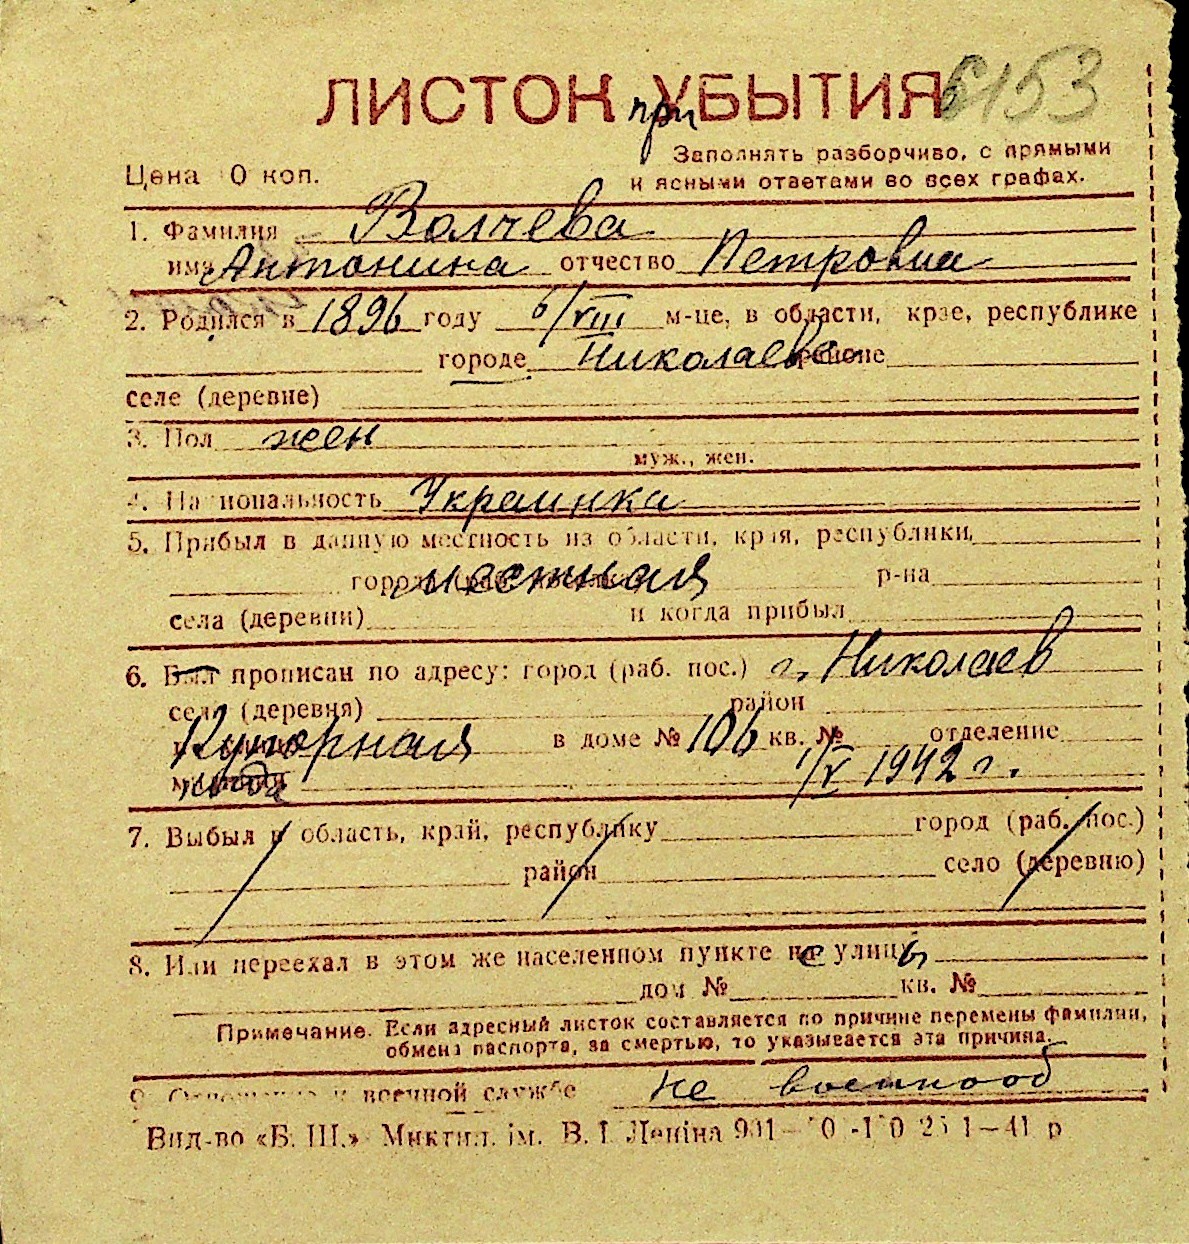 ЛИСТОК УБЫТИЯ 6153
при
Заполнять разборчиво, с прямыми
Цена 0 коп.
и ясными ответами во всех графах.
1. Фамилия Волчева
имя Антонина отчество Петровна
2. Родился в 1896 году 6/VIII м-це, в области, крае, республике
городе Николаеве районе
селе (деревне)
3. Пол жен
муж., жен.
4. Национальность Украинка
5. Прибыл в данную местность из области, края, республики,
города (раб. местная р-на
села (деревни) и когда прибыл
6. Был прописан по адресу: город (раб. пос.) г. Николаев
село (деревня) район
Кугорная в доме № 106 кв. № отделение
милиции 1/V 1942 г.
7. Выбыл в область, край, республику город (раб. пос.)
район село (деревню)
8. Или переехал в этом же населенном пункте с улицы
дом № кв. №
Примечание. Если адресный листок составляется по причине перемены фамилии,
обмена паспорта, за смертью, то указывается эта причина.
9. Отношение к военной службе не военнооб
Вид-во «Б. Ш.» Миктил. ім. В. І. Леніна 1—41 р